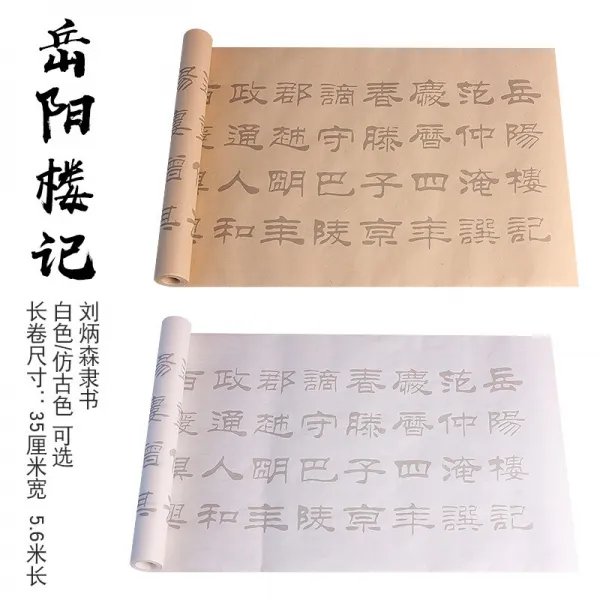 岳阳楼记
刘炳森隶书
白色/仿古色 可选
长卷尺寸：35厘米宽 5.6米长
岳陽樓記
范仲淹譔
慶曆四年
春滕子京
謫守巴陵
郡越朙年
政通人和
百
岳陽樓記
范仲淹譔
慶曆四年
春滕子京
謫守巴陵
郡越朙年
政通人和
百